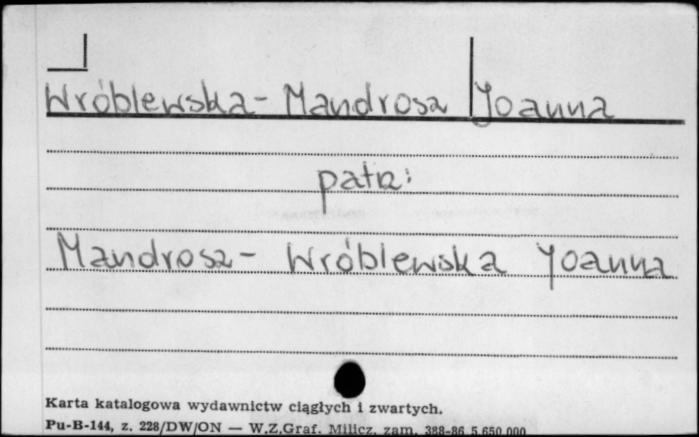 Wróblewska - Mandrosz Joanna
patrz:
Mandrosz - Wróblewska Joanna
Karta katalogowa wydawnictw ciągłych i zwartych.
Pu-B-144, z. 228/DW/ON — W.Z.Graf. Milicz, zam. 388-86 5.650.000